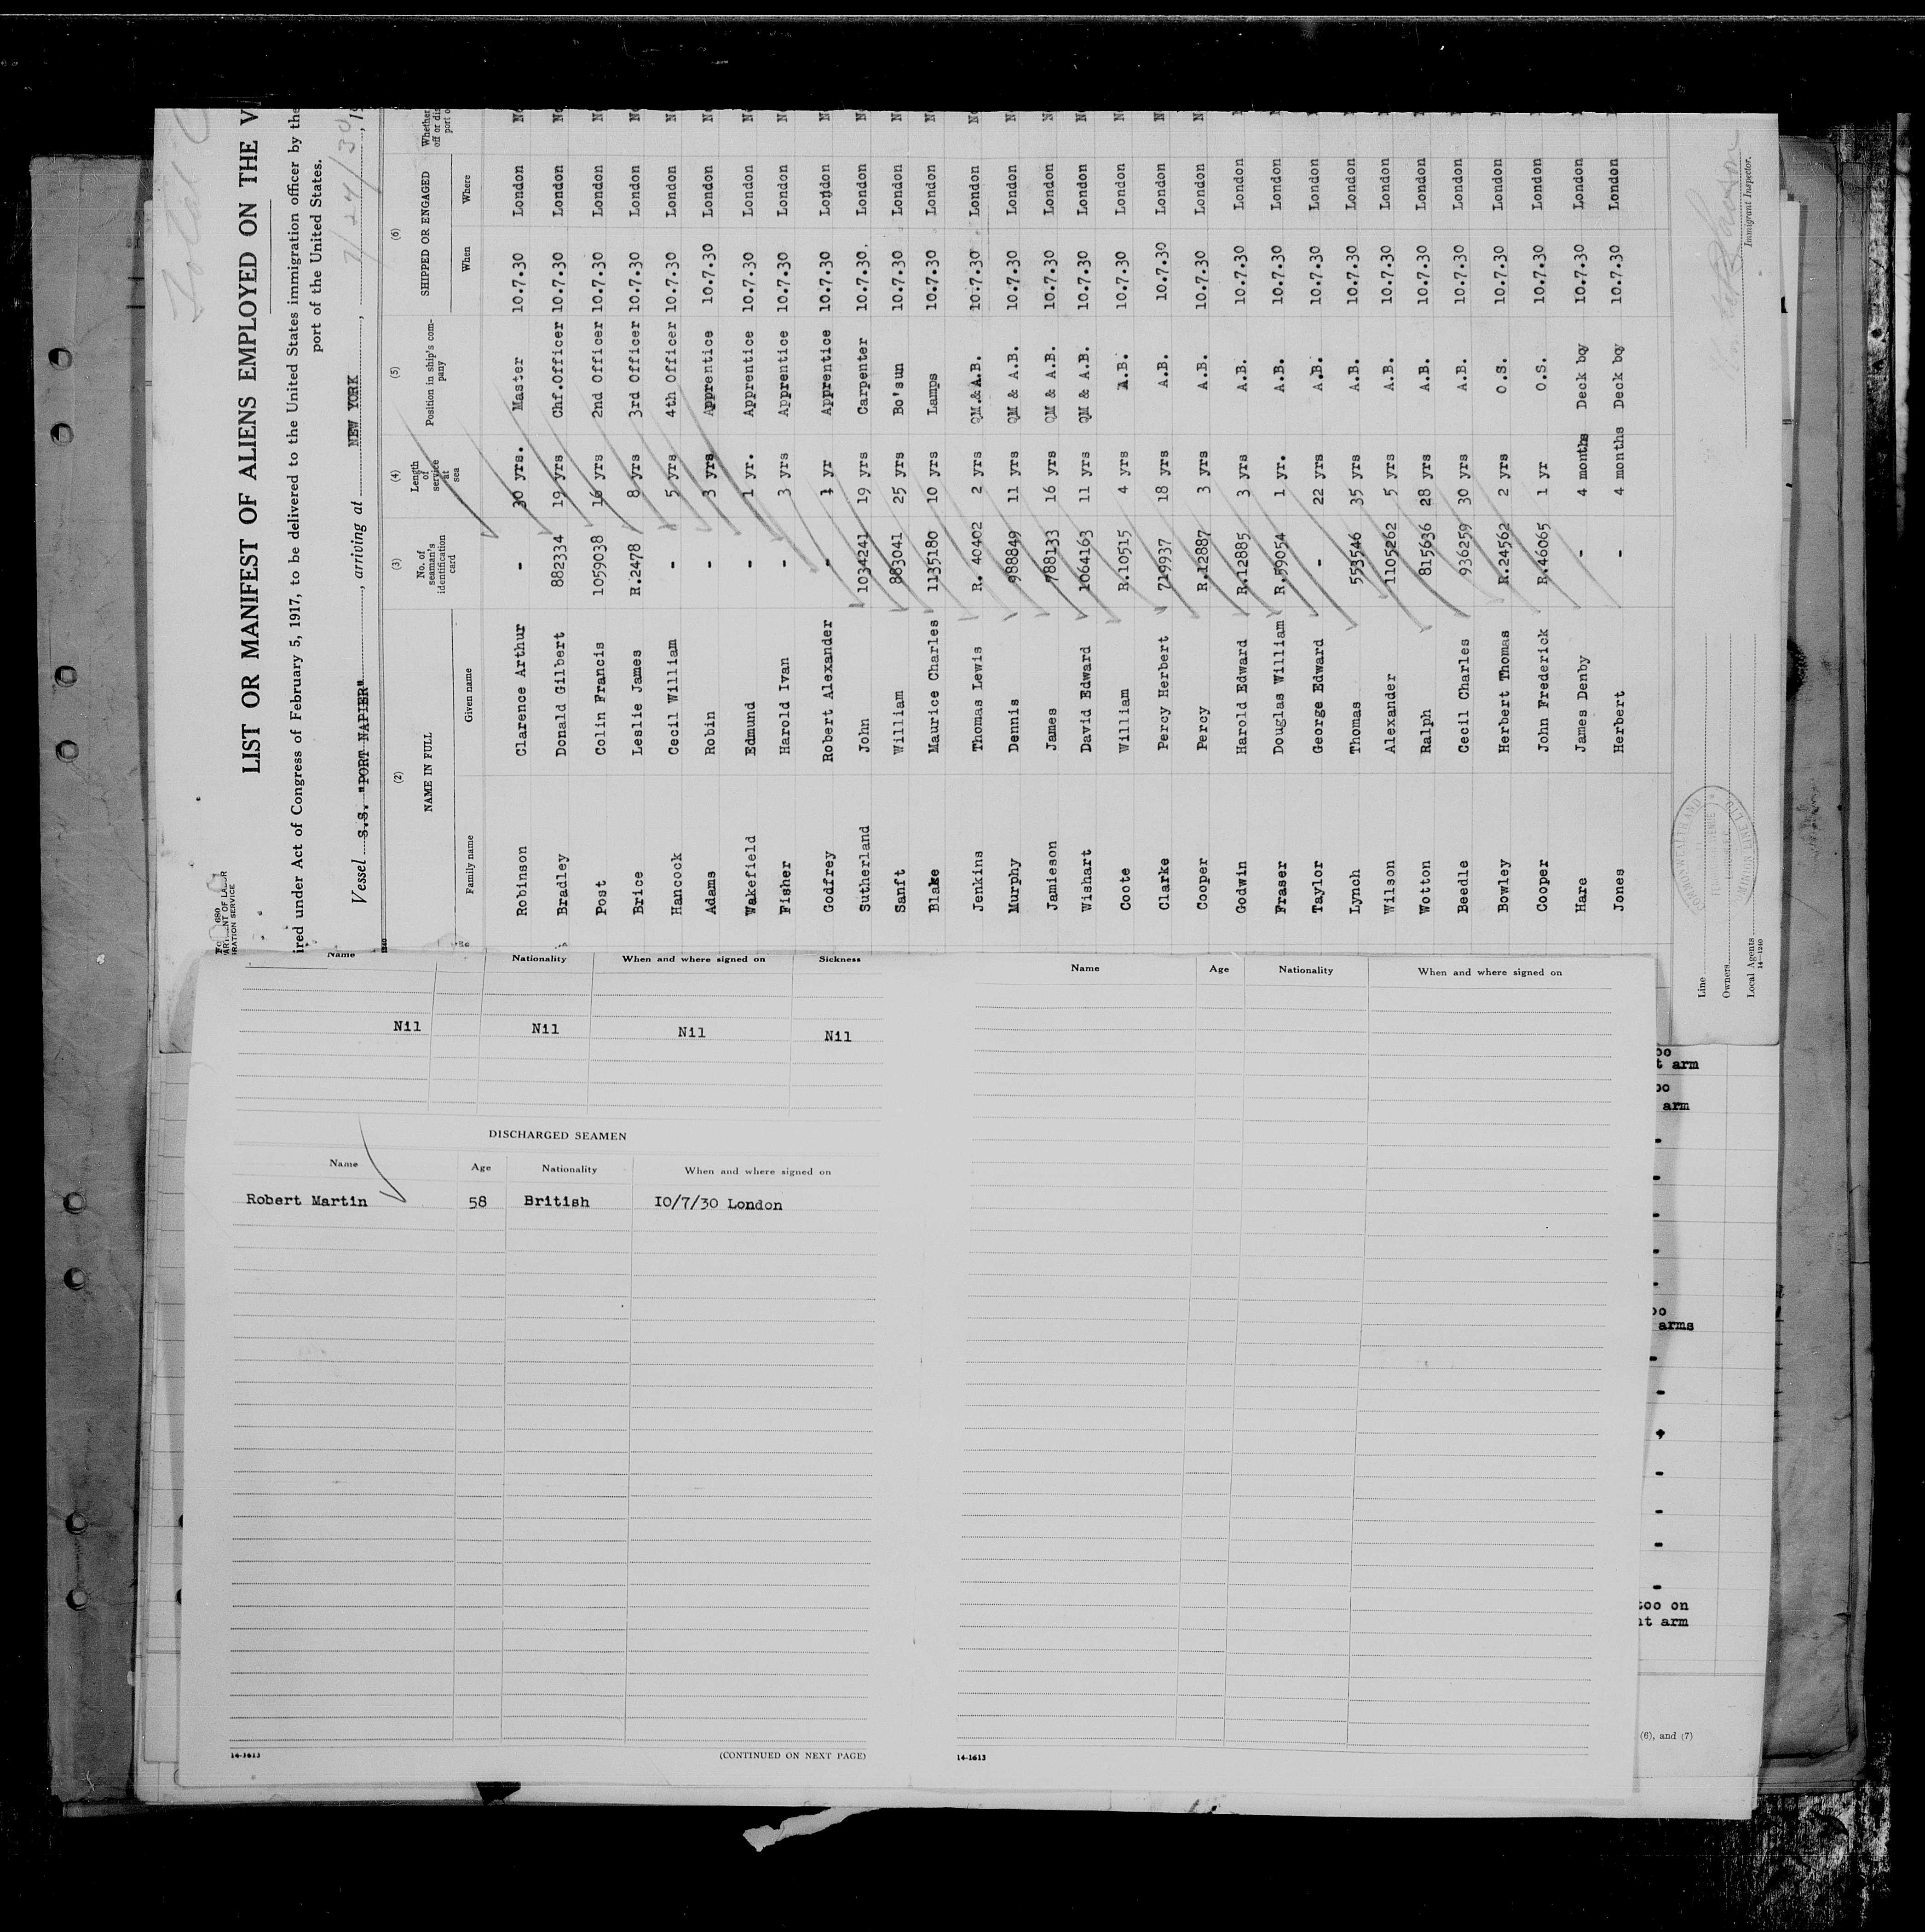 LIST OR MANIFEST OF ALIENS EMPLOYED ON THE V
ired under Act of Congress of February 5, 1917, to be delivered to the United States immigration officer by the
port of the United States.
Vessel S.S. "PORT NAPIER", arriving at NEW YORK, 7/24/30, 19
(2) (3) (4) (5) (6)
NAME IN FULL No. of seaman's identification card Length of service at sea Position in ship's company SHIPPED OR ENGAGED
Family name Given name When Where
Robinson Clarence Arthur - 30 yrs. Master 10.7.30 London
Bradley Donald Gilbert 882334 19 yrs Chf.Officer 10.7.30 London
Post Colin Francis 1059038 16 yrs 2nd Officer 10.7.30 London
Brice Leslie James R.2478 8 yrs 3rd Officer 10.7.30 London
Hancock Cecil William - 5 yrs 4th Officer 10.7.30 London
Adams Robin - 3 yrs Apprentice 10.7.30 London
Wakefield Edmund - 1 yr. Apprentice 10.7.30 London
Fisher Harold Ivan - 3 yrs Apprentice 10.7.30 London
Godfrey Robert Alexander - 1 yr Apprentice 10.7.30 London
Sutherland John 1034241 19 yrs Carpenter 10.7.30. London
Sanft William 883041 25 yrs Bo'sun 10.7.30 London
Blake Maurice Charles 1135180 10 yrs Lamps 10.7.30 London
Jenkins Thomas Lewis R. 40402 2 yrs QM.& A.B. 10.7.30 London
Murphy Dennis 988849 11 yrs QM & A.B. 10.7.30 London
Jamieson James 788133 16 yrs QM & A.B. 10.7.30 London
Wishart David Edward 1064163 11 yrs QM & A.B. 10.7.30 London
Coote William R.10515 4 yrs A.B. 10.7.30 London
Clarke Percy Herbert 719937 18 yrs A.B. 10.7.30 London
Cooper Percy R.12887 3 yrs A.B. 10.7.30 London
Godwin Harold Edward R.12885 3 yrs A.B. 10.7.30 London
Fraser Douglas William R.59054 1 yr. A.B. 10.7.30 London
Taylor George Edward - 22 yrs A.B. 10.7.30 London
Lynch Thomas 553546 35 yrs A.B. 10.7.30 London
Wilson Alexander 1105262 5 yrs A.B. 10.7.30 London
Wotton Ralph 815636 28 yrs A.B. 10.7.30 London
Beedle Cecil Charles 936259 30 yrs A.B. 10.7.30 London
Bowley Herbert Thomas R.24562 2 yrs O.S. 10.7.30 London
Cooper John Frederick R.46065 1 yr O.S. 10.7.30 London
Hare James Denby - 4 months Deck boy 10.7.30 London
Jones Herbert - 4 months Deck boy 10.7.30 London
Line
Owners
Local Agents
14-1240
Immigrant Inspector.
Name Nationality When and where signed on Sickness
Nil Nil Nil Nil
DISCHARGED SEAMEN
Name Age Nationality When and where signed on
Robert Martin 58 British 10/7/30 London
14-1613 (CONTINUED ON NEXT PAGE)
Name Age Nationality When and where signed on
14-1613
arm
arm
arms
too on
arm
(6), and (7)